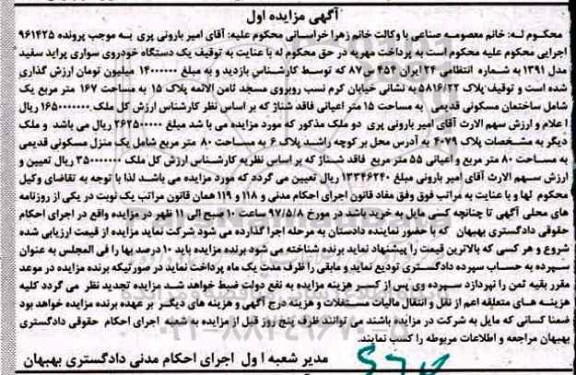 آگهی مزایده اول
محکوم له: خانم معصومه صناعی با وکالت خانم زهرا خراسانی محکوم علیه: آقای امیر بارونی پری به موجب پرونده ۹۶۱۴۲۵
اجرایی محکوم علیه محکوم است به پرداخت مهریه در حق محکوم له با عنایت به توقیف یک دستگاه خودروی سواری پراید سفید
مدل ۱۳۹۱ به شماره انتظامی ۲۴ ایران ۴۵۴ س ۸۷ که توسط کارشناس بازدید و به مبلغ ۱۴۰۰۰۰۰۰ میلیون تومان ارزش گذاری
شده است و توقیف پلاک ۵۸۱۶/۲۲ به نشانی خیابان گرم نسب روبروی مسجد ثامن الائمه پلاک ۱۵ به مساحت ۱۶۷ متر مربع که
شامل ساختمان مسکونی قدیمی به مساحت ۱۵ متر اعیانی فاقد شناژ که بر اساس نظر کارشناس ارزش کل ملک ۱۶۵۰۰۰۰۰۰۰ ریال
اعلام و ارزش سهم الارث آقای امیر بارونی پری دو ملک مذکور که مورد مزایده می با شد مبلغ ۲۶۲۵۰۰۰۰۰ ریال می باشد و ملک
دیگر به مشخصات پلاک ۴۰۷۹ به آدرس محل بر کوچه راشد پلاک ۶ به مساحت ۸۰ متر مربع شامل یک منزل مسکونی قدیمی
به مساحت ۸۰ متر مربع و اعیانی ۵۵ متر مربع فاقد شناژ که بر اساس نظریه کارشناس ارزش کل ملک ۳۵۰۰۰۰۰۰۰ ریال تعیین و
ارزش سهم الارث آقای امیر بارونی مبلغ ۱۳۳۴۶۲۴۰ ریال تعیین می گردد که مورد مزایده می باشد لذا با توجه به تقاضای وکیل
محکوم لها و با عنایت به مراتب فوق وفق مفاد قانون اجرای احکام مدنی و ۱۱۸ و ۱۱۹ همان قانون مراتب یک نوبت در یکی از روزنامه
های محلی آگهی تا چنانچه کسی مایل به خرید باشد در مورخ ۹۷/۵/۸ ساعت ۱۰ صبح الی ۱۱ ظهر در مزایده واقع در اجرای احکام
حقوقی دادگستری بهبهان که با حضور نماینده دادستان به مرحله اجرا گذارده می شود شرکت نماید مزایده از قیمت ارزیابی شده
شروع و هر کسی که بالاترین قیمت را پیشنهاد نماید برنده شناخته می شود برنده مزایده باید ۱۰ درصد بها را فی المجلس به عنوان
سپرده به حساب سپرده دادگستری تودیع نماید و مابقی را ظرف مدت یک ماه پرداخت نماید در صورتیکه برنده مزایده در موعد
مقرر بقیه ثمن را نپردازد سپرده وی پس از کسر هزینه مزایده به نفع دولت ضبط خواهد شد مزایده تجدید نظر می گردد کلیه
هزینه های متعلقه اعم از نقل و انتقال مالیات مستغلات و هزینه درج آگهی و هزینه های دیگر بر عهده برنده مزایده خواهد بود
ضمنا کسانی که مایل به شرکت در مزایده باشند می توانند ظرف پنج روز قبل از مزایده به شعبه اجرای احکام حقوقی دادگستری
بهبهان مراجعه و اطلاعات مربوطه را کسب نمایند.
مدیر شعبه ا ول اجرای احکام مدنی دادگستری بهبهان